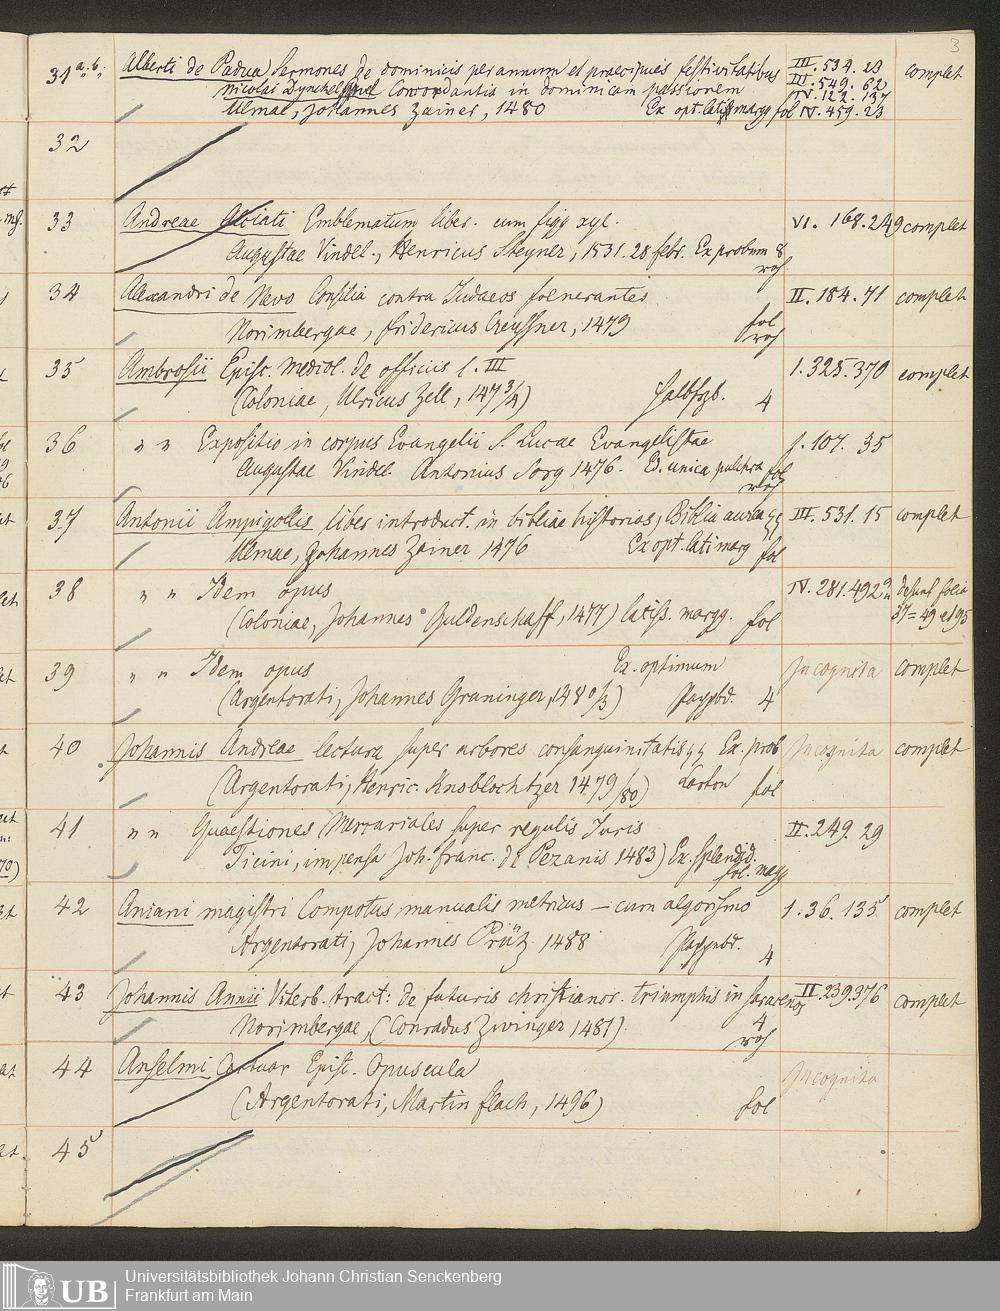 3
31 a. b. Alberti de Padua Sermones de dominicis per annum et praecipuis festivitatibus III. 534. 23 complet
Nicolai Dynckelspuel Concordantia in dominicam passionem III. 549. 62
IV. 122. 137
Ulmae, Johannes Zainer, 1480 Ex opt. latiss margg fol IV. 459. 23
32
33 Andreae Alciati Emblematum liber. cum figg xyl. VI. 168. 249 complet
Augustae Vindel., Henricus Steyner, 1531. 28 febr. Ex probum 8
roh
34 Alexandri de Nevo Consilia contra Judaeos foenerantes II. 184. 71 complet
Norimbergae, Fridericus Creyssner, 1479 fol
roh
35 Ambrosii Episc. Mediol. de officiis l. III 1. 325. 370 complet
(Coloniae, Ulricus Zell, 147 3/4) Halbfrzb. 4
36 " " Expositio in corpus Evangelii S. Lucae Evangelistae 1. 107. 35
Augustae Vindel. Antonius Sorg 1476. Ed. unica, pulchra fol
roh
37 Antonii Ampigollis liber introduct. in bibliae historias, Biblia aurea III. 531. 15 complet
Ulmae, Johannes Zainer 1476 Ex opt. lati marg fol
38 " " Idem opus IV. 281. 492 desunt folia
37=49 et 95
(Coloniae, Johannes Guldenschaff, 1477) latiss. margg. fol
39 " " Idem opus Ex. optimum Incognita complet
(Argentorati, Johannes Gruninger, 1480/3) Pappbd. 4
40 Johannis Andreae lectura super arbores consanguinitatis Ex. prob Incognita complet
(Argentorati, Henric. Knoblochtzer 1479/80) Carton fol
41 " " Quaestiones Mercuriales super regulis Juris II. 249. 29
Ticini, impensa Joh. franc. de Pezanis 1483) Ex. splendid.
fol. magg
42 Aniani magistri Compotus manualis metricus — cum algorismo 1. 36. 135 complet
Argentorati, Johannes Prüß 1488 Pappbd. 4
43 Johannis Annii Viterb. tract: de futuris christianor. triumphis in saracenos II. 239. 376 complet
Norimbergae, (Conradus Zeninger 1481) 4
roh
44 Anselmi Cantuar Episc. Opuscula Incognita
(Argentorati, Martin flach, 1496) fol
45
UB
Universitätsbibliothek Johann Christian Senckenberg
Frankfurt am Main